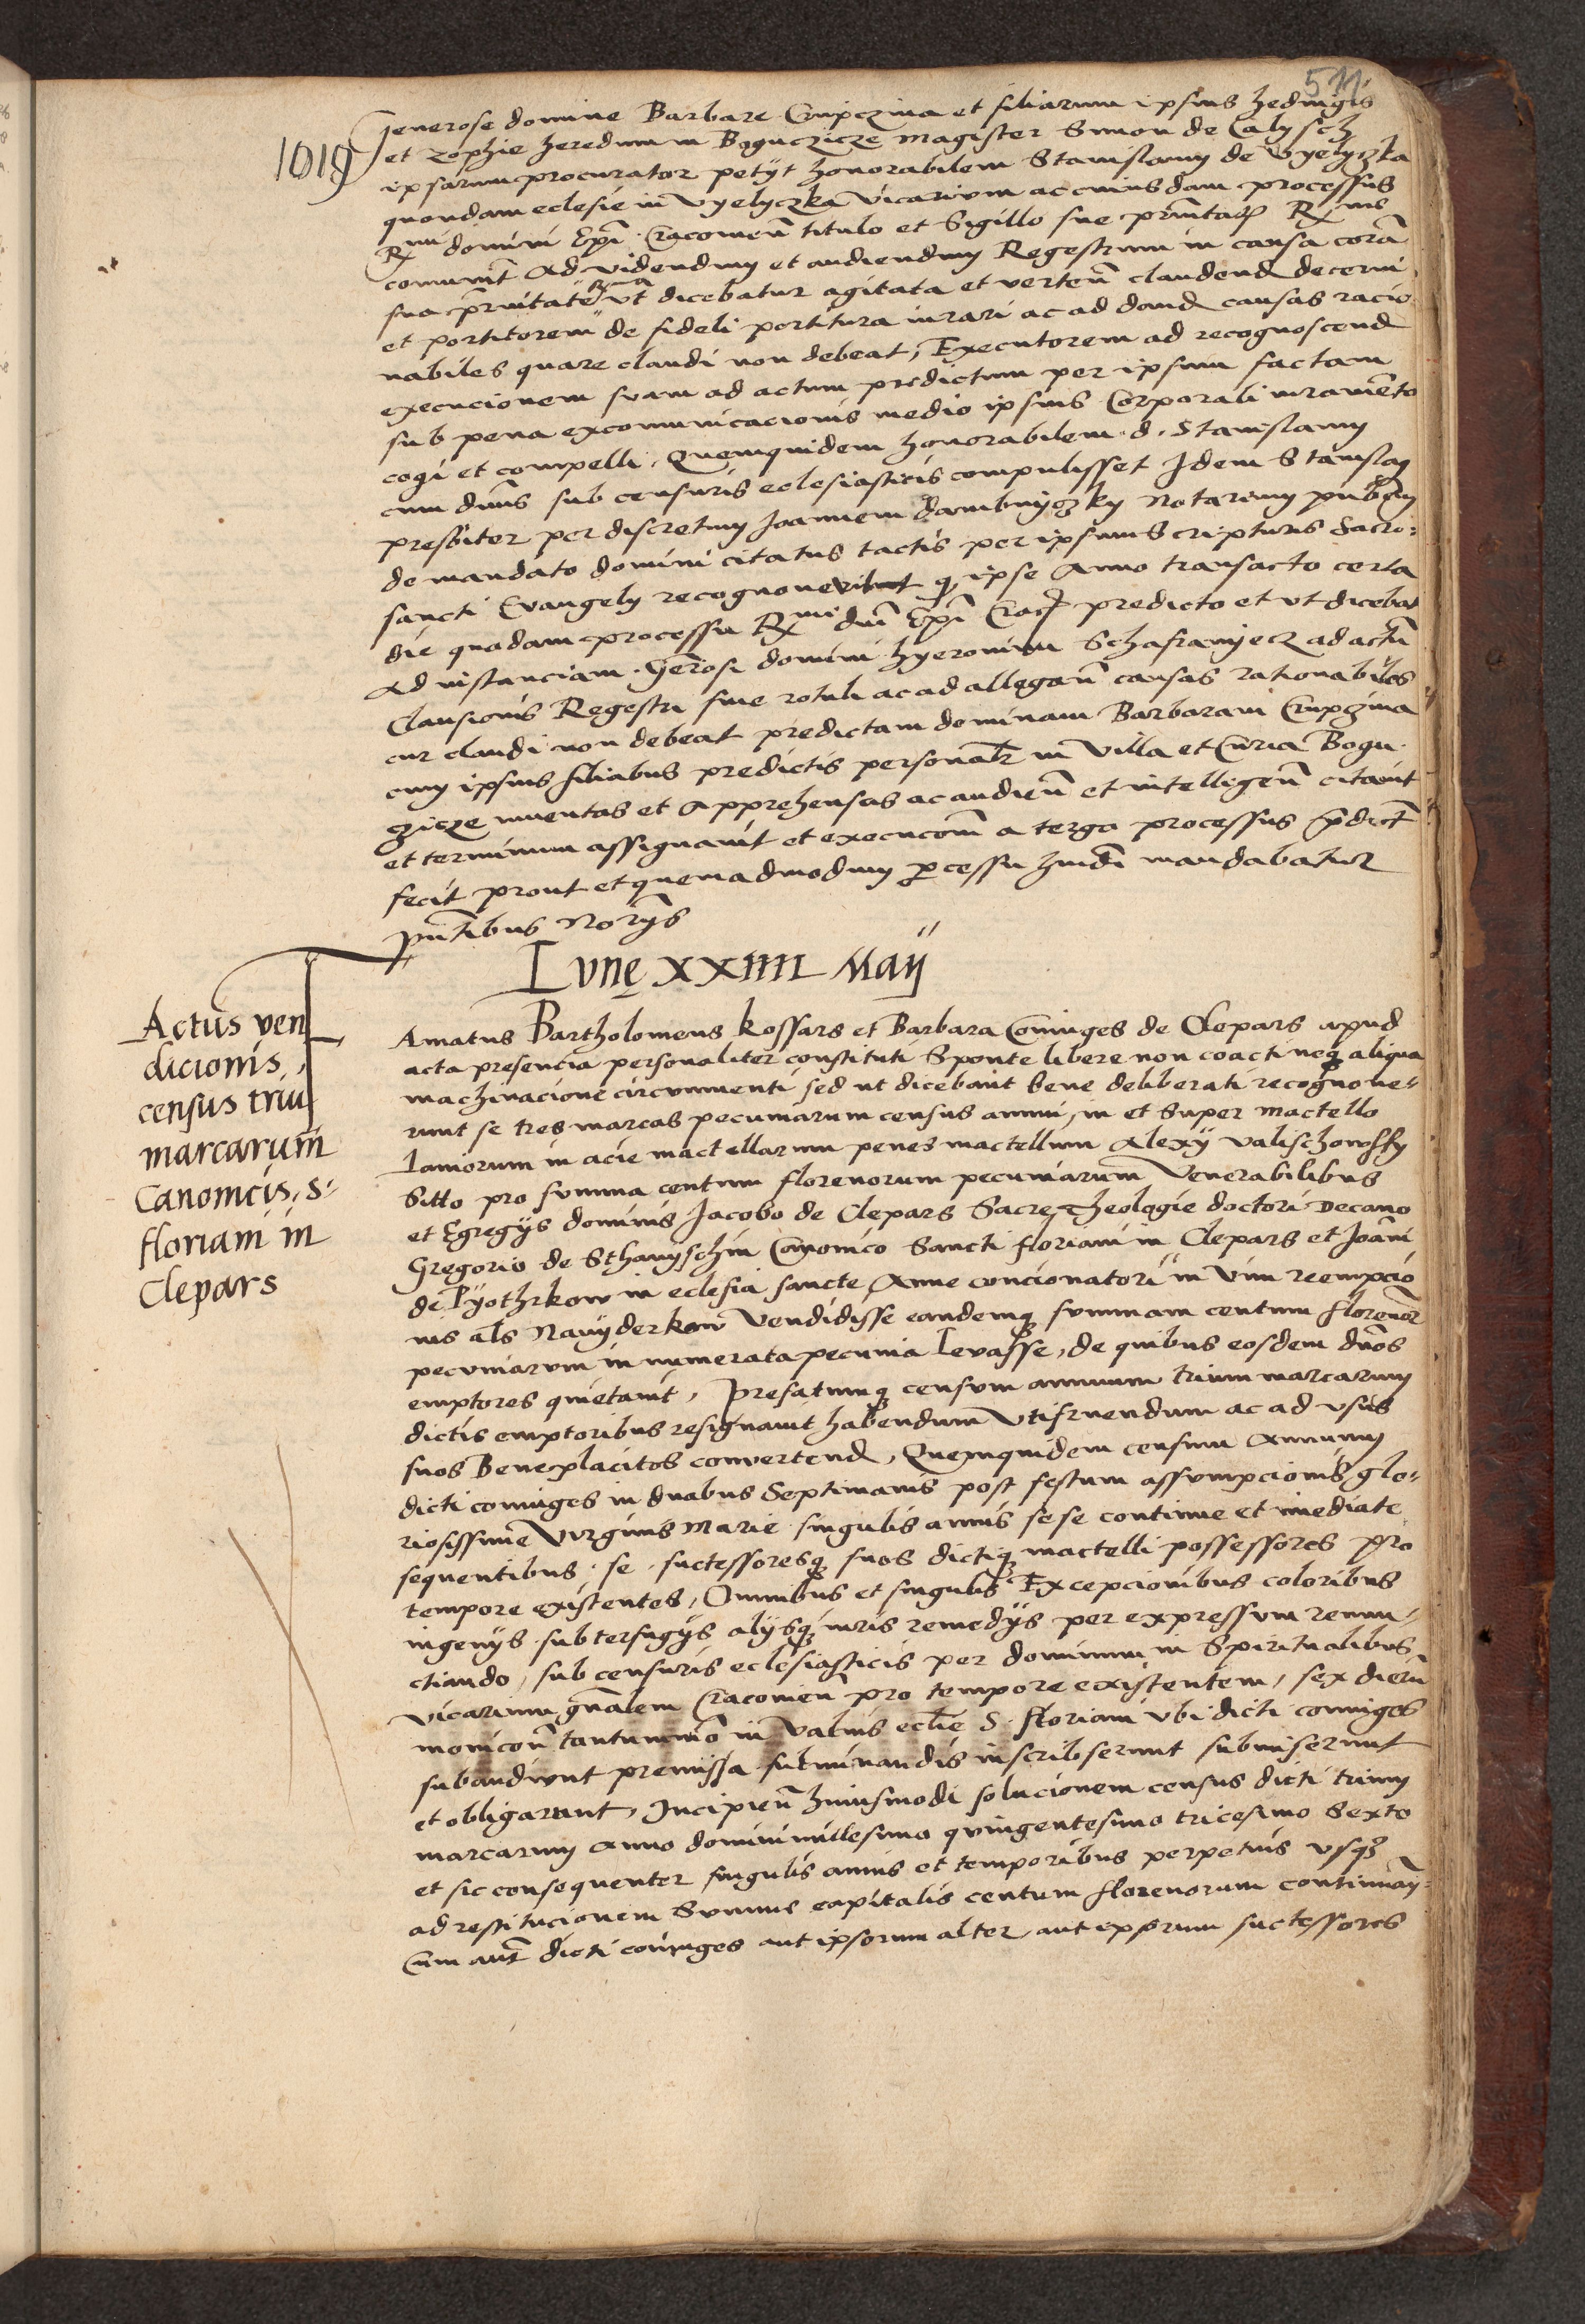 511
1019
Generose domine Barbare Crupczina et filiarum ipsius hedwigis
et zophie heredum in Boguczicze Magister Simon de Calysch
ipsarum procurator petyt honorabilem Stanislaum de Vyelyczka
quondam eclesie in Vyelyczka Vicarium ac cuiusdam processus
Rmi domini Epi Cracouien titulo et Sigillo sue
Ad videndum et audiendum Regestrum in causa coram
sua ut dicebatur agitata et verten claudend decerni
et portitorem de fideli portitura iurari ac ad dand causas racio
nabiles quare claudi non debeat, Executorem ad recognoscend
execucionem suam ad actum predictum per ipsum factam
sub pena excomunicacionis medio ipsius Corporali iuramento
cogi et compelli. Quemquidem honorabilem d. Stanislaum
cum dnus sub censuris eclesiasticis compulisset Idem Stanislaus
presbiter per discretum Joannem Notarium pubcum
de mandato domini citatus tactis per ipsum Scripturis Sacro:
sancti Evangely recognovit q ipse Anno transacto certa
die quadam processu Rmi dni Epi Crac predicto et ut dicebat
Ad instanciam Generosi domini hyeronimi Schafranyecz ad actum
Clausionis Regestri siue rotuli ac ad allegan causas rationabiles
cur claudi non debeat predictam dominam Barbaram Crupczina
cum ipsius filiabus predictis personalr in Villa et Curia Bogu
czicze inuentas et Apprehensas ac audien et intelligen citauit
et terminum assignauit et execucom a tergo processus pdict
fecit prout et quemadmodum pcessu hmdi mandabatur
pntibus Norys
Lune XXIIII Maij
Actus ven
dicionis
census triu
marcarum
Canonicis, S:
floriani in
Clepars
Amatus Bartholomeus Kossars et Barbara Coniuges de Clepars apud
acta presencia personaliter constituti Sponte libere non coacti neq aliqua
machinacione circumuenti sed ut dicebant bene deliberati recognoue:
runt se tres marcas pecuniarum census annui, in et Super mactello
laniorum in acie mactellarum penes mactellum Alexy
Sitto pro summa centum florenorum pecuniarum Venerabilibus
et Egregijs dominis Jacobo de Clepars Sacre Theologie doctori Decano
Gregorio de Canonico Sancti floriani in Clepars et Joani
de Pyothrkow in eclesia sancte Anne concionatori in Vim reempcio
nis als Nawyderkow Vendidisse eandemq summam centum florenor
pecuniarum in numerata pecunia Levasse, de quibus eosdem dnos
emptores quietauit, Prefatumq censum annuum trium marcarum
dictis emptoribus resignauit habendum Utifruendum ac ad usus
suos Beneplacitos convertend, Quemquidem censum Annuum
dicti coniuges in duabus Septimanis post festum assumpcionis glo:
riosissime Virginis Marie singulis annis sese continue et imediate
sequentibus. se. successoresq suos dictiq mactelli possessores pro
tempore existentes, Omnibus et singulis Excepcionibus coloribus
ingenijs subterfugijs alysq iuris remedijs per expressum renun:
ctiando, sub censuris eclesiasticis per dominum in Spiritualibus
vicarium gnalem Cracouien pro tempore existentem, sex dierum
monicon tantummo in Valuis eclie S. floriani ubi dicti coniuges
subaudiunt premissa fulminandis inscribserunt submiserunt
et obligarunt, Incipien huiusmodi solucionem census dicti trium
marcarum Anno domini millesimo quingentesimo tricesimo Sexto
et sic consequenter singulis annis et temporibus perpetuis usq
ad restitucionem Summe capitalis centum florenorum
Cum aut dicti coniuges aut ipsorum alter aut ipsorum successores